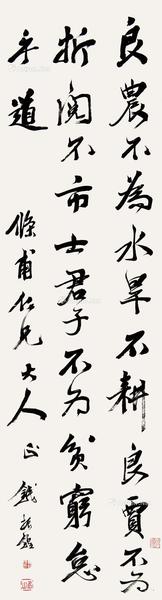 良農不為水旱不耕良賈不為
折閱不市士君子不為貧窮怠
乎道
滌甫仁兄大人正
錢振鍠